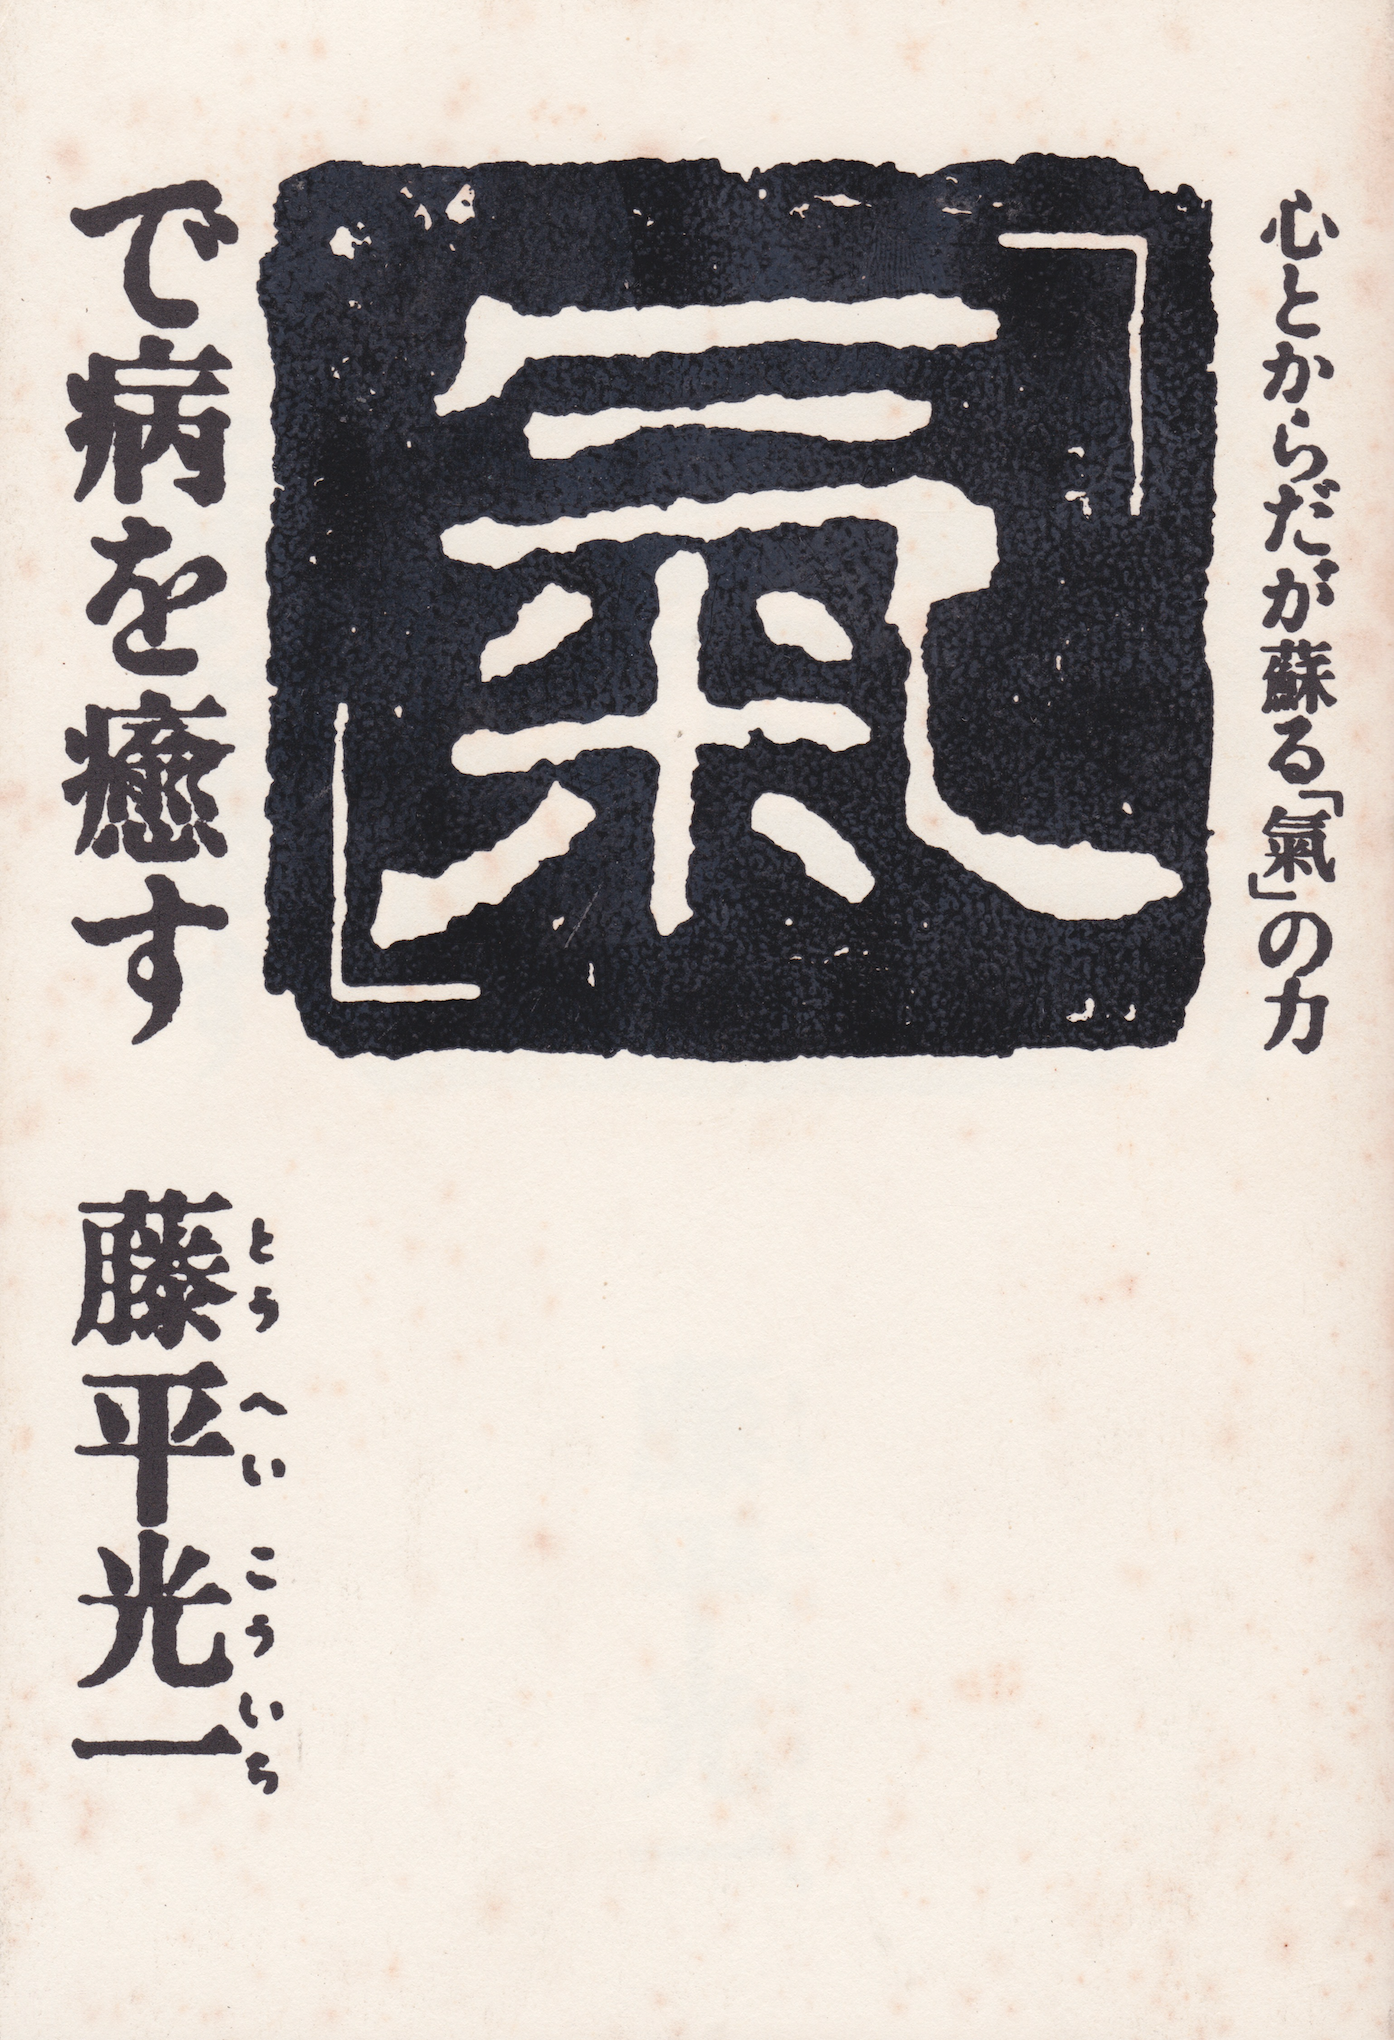 心とからだが蘇る「氣」の力
「氣」
で病を癒す
藤平光一
とうへいこういち